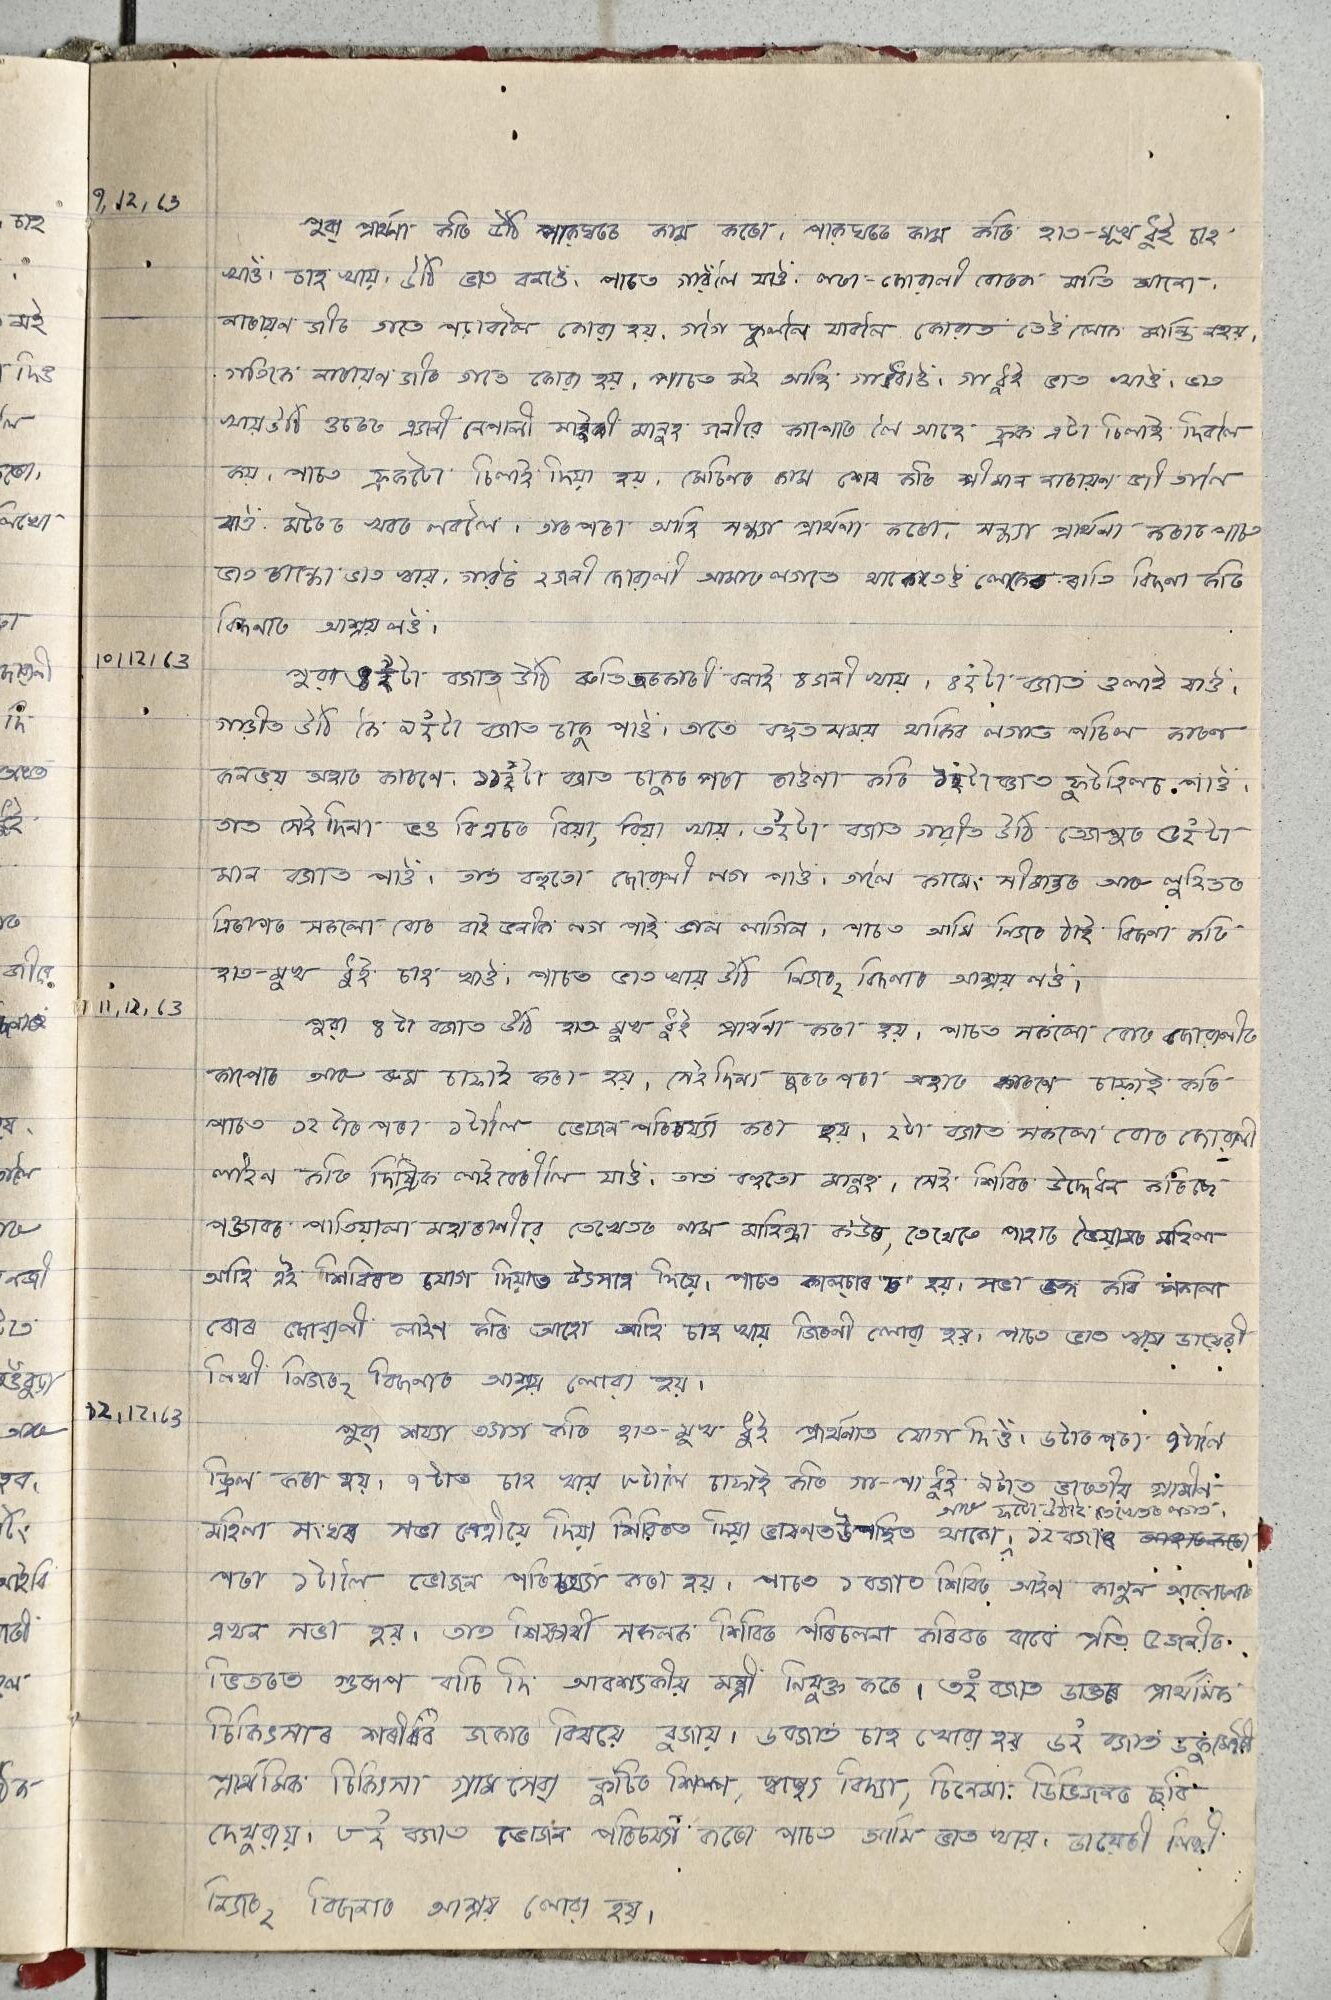 9,12,63
পুৱা প্ৰাৰ্থনা কৰি উঠি পাকঘৰত কাম কৰো। পাকঘৰত কাম কৰি হাত-মুখ ধুই চাহ
খাওঁ। চাহ খায় উঠি ভাত বনাওঁ। পাচত গাৱঁলৈ যাওঁ। লৰা-ছোৱালী বোৰক মাতি আনো।
নাৰায়ন জীৰ গাতে পঢ়াবলৈ কোৱা হয়। গগৈ স্কুললৈ যাবলৈ কোৱাত তেওঁলোক মান্তি নহয়,
গতিকে নাৰায়ন জীৰ গাতে কোৱা হয়। পাচত মই আহি গা ধোওঁ। গা ধুই ভাত খাওঁ। ভাত
খায় উঠি ওচৰত এজনী নেপালী মানুহ জনীয়ে কাপোৰ লৈ আহে ফ্ৰক এটা চিলাই দিবলৈ
কয়, পাচত ফ্ৰকটো চিলাই দিয়া হয়। মেচিনৰ কাম শেষ কৰি শ্ৰীমান নাৰায়ন জী তালৈ
যাওঁ মটৰৰ খবৰ লবলৈ। তাৰ পৰা আহি সন্ধ্যা প্ৰাৰ্থনা কৰো, সন্ধ্যা প্ৰাৰ্থনা কৰাৰ পাচত
ভাত ৰান্ধো ভাত খায়, গাৱঁৰ ২জনী ছোৱালী আমাৰ লগতে থাকে তেওঁ লোকেৰে ৰাতি বিচনা কৰি
বিচনাত আশ্ৰয় লওঁ।
10,12,63
পুৱা ৪½টা বজাত উঠি ৰুতি তৰকাৰী বনাই ৪জনী খায়, ৪½টা বজাত ওলাই যাওঁ।
গাড়ীত উঠি গৈ ৯½টা বজাত চাকু পাওঁ। তাতে বহুত সময় থাকিব লগাত পৰিল কাৰণ
কনভয় অহাৰ কাৰণে, ১১½টা বজাত চাকুৰ পৰা ৰাওনা কৰি ১½টা বজাত ফুটহিলচ পাওঁ।
তাত সেই দিনা ভণ্ড বিএৰত বিয়া, বিয়া খায়, ৩½টা বজাত গাড়ীত উঠি তেজপুৰ ৫½টা
মান বজাত পাওঁ। তাত বহুতো ছোৱালী লগ পাওঁ। তালৈ কামেং সীমান্তৰ আৰু লুহিতৰ
ত্ৰিৰাপৰ সকলো বোৰ বাই ভনীক লগ পাই ভাল লাগিল। পাচত আমি নিজৰ ঠাই বিচনা কৰি
হাত-মুখ ধুই চাহ খাওঁ। পাচত ভাত খায় উঠি নিজৰ২ বিচনাত আশ্ৰয় লওঁ।
11,12,63
পুৱা ৪টা বজাত উঠি হাত মুখ ধুই প্ৰাৰ্থনা কৰা হয়, পাচত সকলো বোৰ ছোৱালীৰ
কাপোৰ আৰু ৰুম চাফাই কৰা হয়, সেই দিনা দুৰৰ পৰা অহাৰ কাৰণে চাফাই কৰি
পাচত ১২ টাৰ পৰা ১টালৈ ভোজন পৰিচৰ্য্যা কৰা হয়, ২টা বজাত সকলো বোৰ ছোৱালী
লাইন কৰি দিষ্ট্ৰিক লাইব্ৰেৰীলৈ যাওঁ। তাত বহুতো মানুহ, সেই শিবিৰ উদ্দেধন কৰিছে
পঞ্জাবৰ পাতিয়ালা মহাৰাণীয়ে তেখেতৰ নাম মাহিন্দ্ৰা কউৰ, তেখেতে পাহাৰ ভৈয়ামৰ মহিলা
আহি এই শিবিৰত যোগ দিয়াত উৎসাহ দিয়ে। পাচত কালচাৰ হয়। সভা ভঙ্গ কৰি সকলো
বোৰ ছোৱালী লাইন কৰি আহো আহি চাহ খায় জিৰণী লোৱা হয়। পাচত ভাত খায় ডায়েৰী
লিখী নিজৰ২ বিচনাত আশ্ৰয় লোৱা হয়।
12,12,63
পুৱা শয্যা ত্যাগ কৰি হাত-মুখ ধুই প্ৰাৰ্থনাত যোগ দিওঁ। ৬টাৰ পৰা ৭টালৈ
ড্ৰিল কৰা হয়, ৭টাত চাহ খায় ৮টালৈ চাফাই কৰি গা-পা ধুই ৯টাত ভাৰতীয় গ্ৰামীন
আৰু ফটো উঠাই তেখেতৰ লগত।
মহিলা সংঘৰ সভা নেত্ৰীয়ে দিয়া শিবিৰত দিয়া ভাষনত উপস্থিত থাকো, ১২ বজাৰ
পৰা ১টালৈ ভোজন পৰিচৰ্য্যা কৰা হয়। পাচত ১ বজাত শিবিৰ আইন কানুন আলোচনাৰ
এখন সভা হয়। তাত শিক্ষাৰ্থী সকলক শিবিৰ পৰিচালনা কৰিবৰ বাবে প্ৰতি ৫জনীৰ
ভিতৰত গুৰূপ বাচি দি আৱশ্যকীয় মন্ত্ৰী নিযুক্ত কৰে। ৩½ বজাত ডাক্তৰ প্ৰাৰ্থমিক
চিকিৎসাৰ শৰীৰৰ জকাৰ বিষয়ে বুজায়। ৬বজাত চাহ খোৱা হয় ৬½ বজাত
প্ৰাৰ্থমিক চিকিৎসা গ্ৰাম সেৱা কুটিৰ শিল্প, স্বাস্থ্য বিদ্যা, চিনেমা ডিভিজনৰ ছবি
দেখুৱায়। ৮½ বজাত ভোজন পৰিচৰ্য্যা কৰো পাচত আমি ভাত খায়। ডায়েৰী লিখী
নিজৰ২ বিচনাত আশ্ৰয় লোৱা হয়।